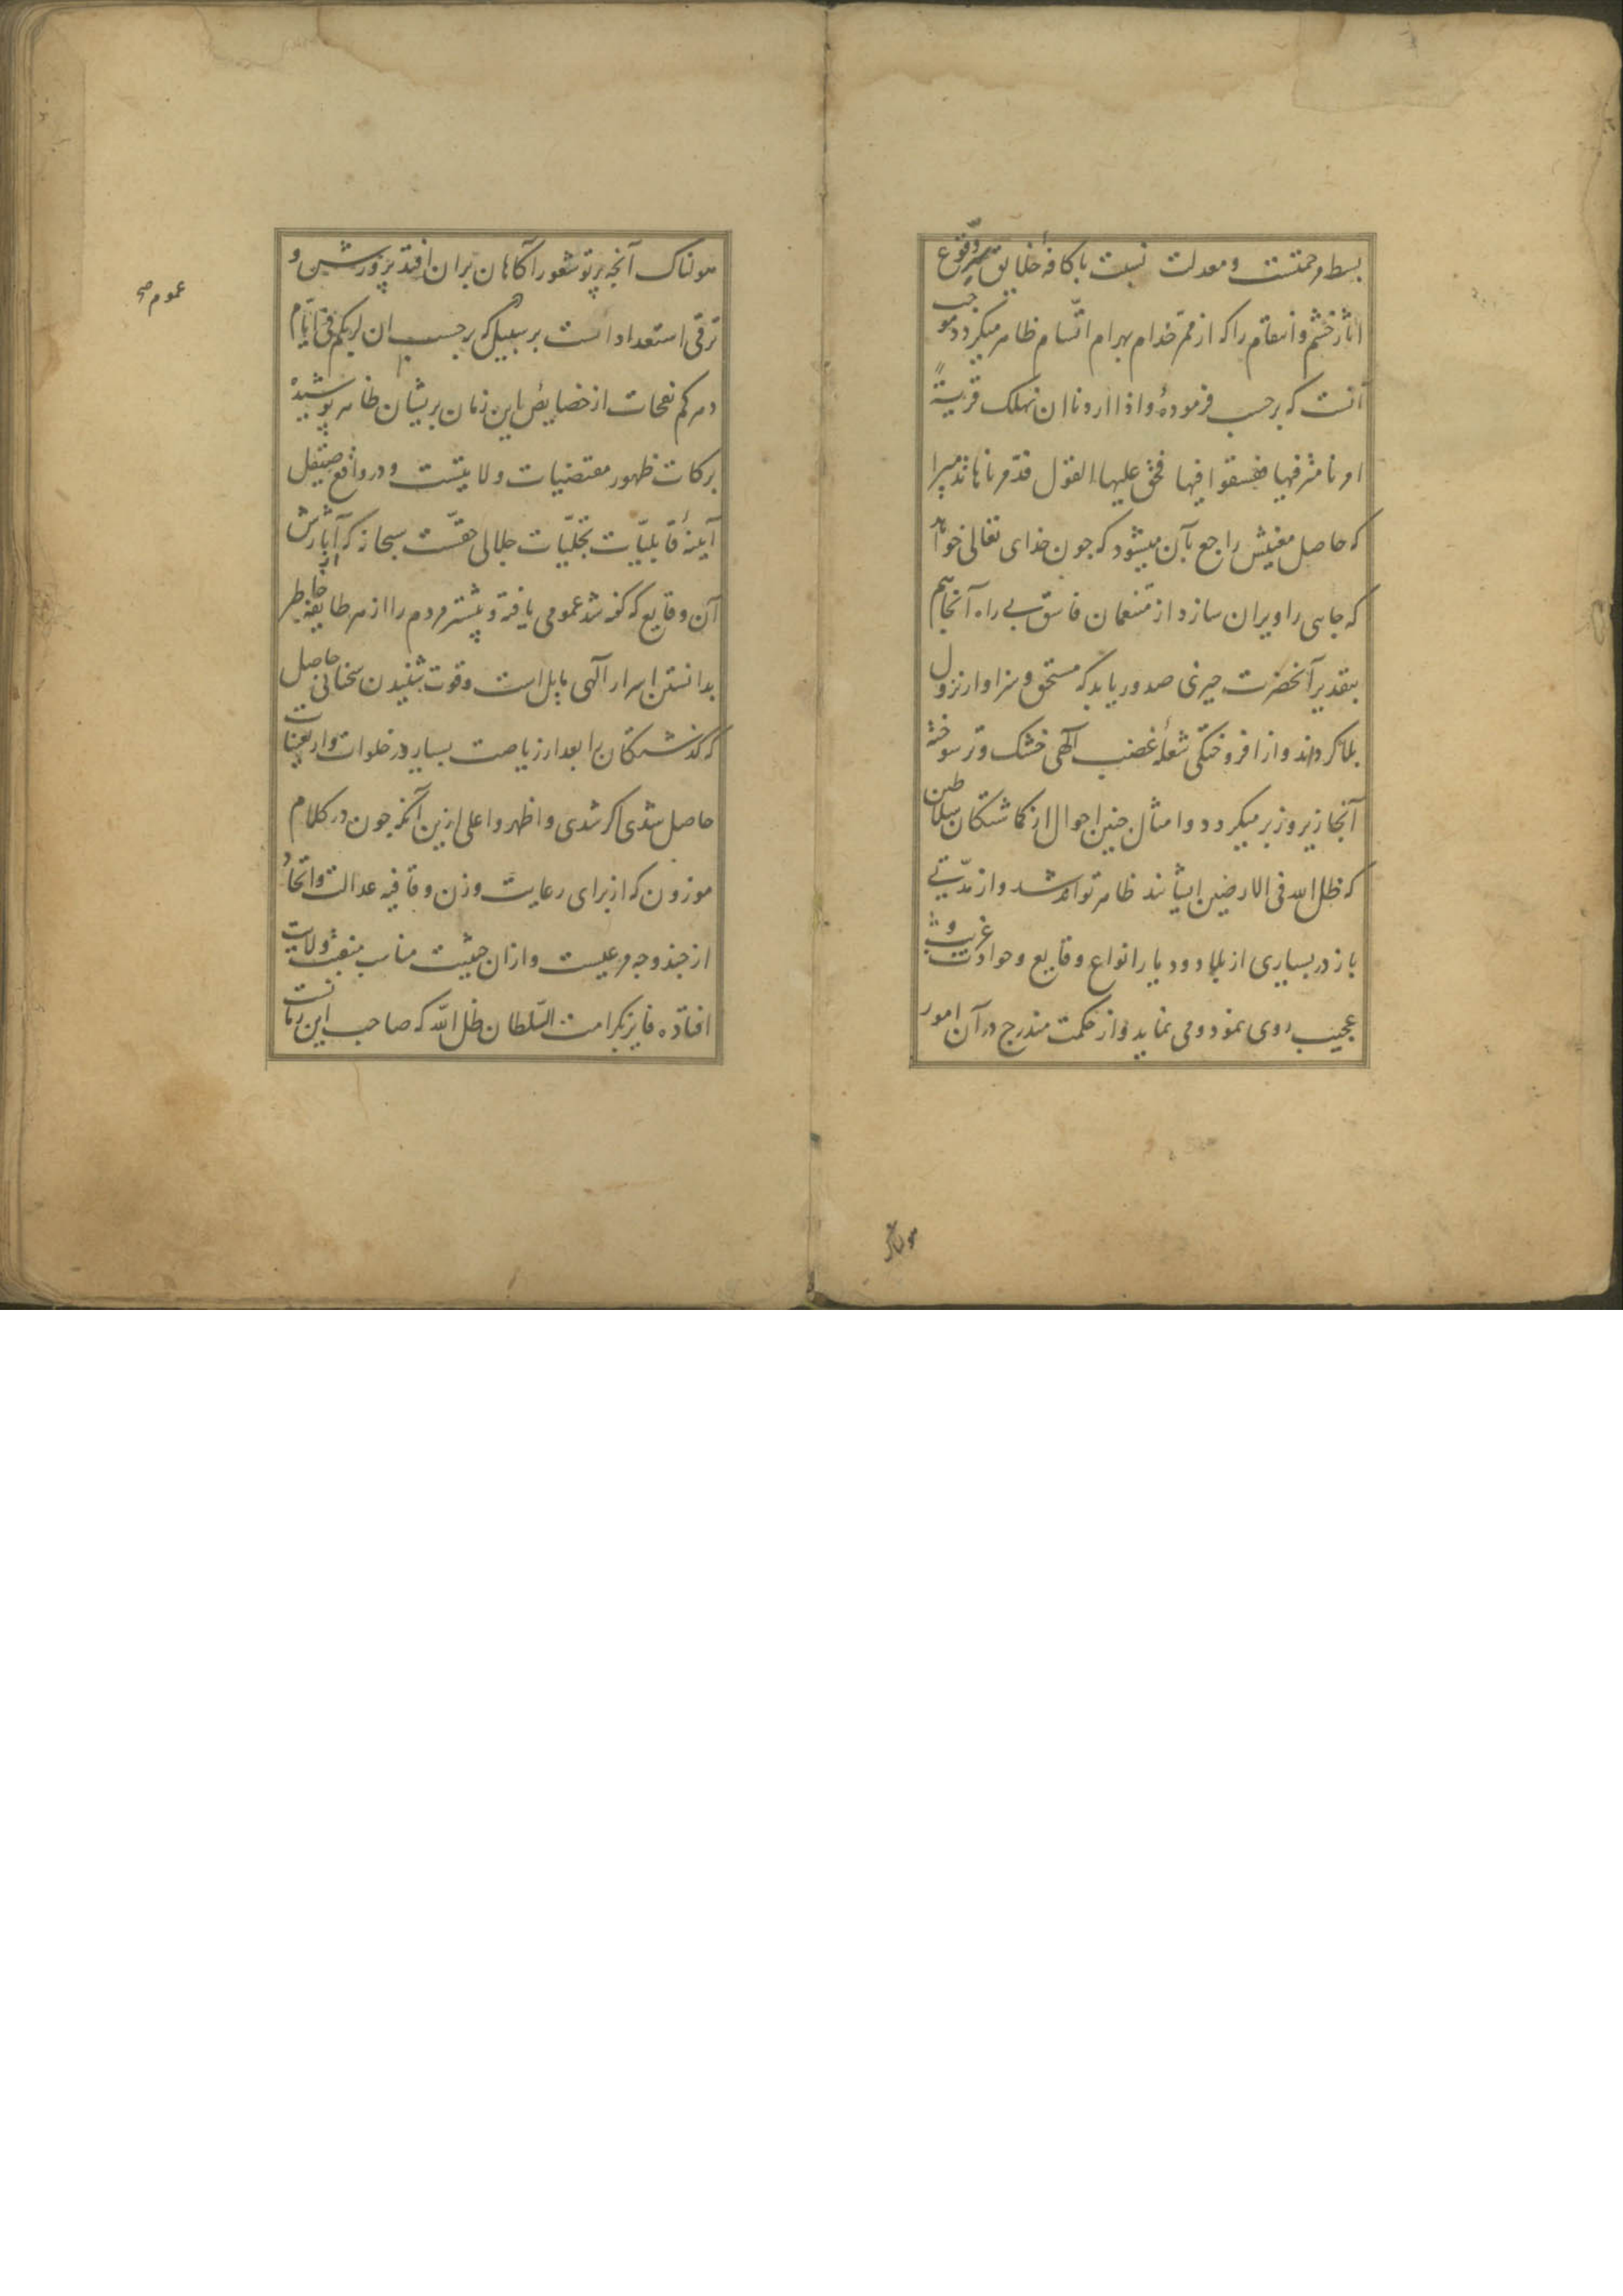 بسط مرحمتست و معدلت نسبت با کافهٔ خلایق سر وقوع
آثار خشم و انتقام را که از ممرّ خدام بهرام انتسام ظاهر میکردد موجب
آنست که برحسب فرمودهٔ و اذا اردنا ان نهلک قریةً
امرنا مترفیها ففسقوا فیها فحق علیها القول فدمرناها تدمیرا
که حاصل معنیش راجع بآن میشود که چون خدای تعالی خواهد
که جایی را ویران سازد از متنعمان فاسق بی راه آنجا هم
بتقدیر آنحضرت چیزی صدور یابد که مستحق و سزاوار نزول
بلا کردند و از افروختکی شعلهٔ غضب الهی خشک و تر سوخته
آنجا زیر و زبر میکردد و امثال چنین احوال از کماشتکان سلاطین
که ظل الله فی الارضین ایشانند ظاهر تواند شد و از مدّتی
باز در بسیاری از بلاد و دیار انواع وقایع و حوادث غریب و
عجیب روی نمود و می نماید و از حکمت مندرج در آن امور
هولناک
هولناک آنچه پرتو شعور آکاهان بران افتد پرورش و
ترقی استعداد است بر سبیل که برحسب ان لربکم فی ایّام
دهرکم نفحات از خصایص این زمان بریشان ظاهر پوشیدهٔ
برکات ظهور مقتضیات ولایتست و در واقع صیقل
آینهٔ قابلیّات تجلیّات جلالی حقّست سبحانه که آثارش از
آن وقایع که کفته شد عمومی یافته و بیشتر مردم را از هر طایفه خاطر
بدانستن اسرار الهی مایل است و قوت شنیدن سخنانی حاصل
که کذشتکان را بعد از ریاضت بسیار در خلوات و اربعینات
حاصل شدی اکر شدی و اظهر و اعلی ازین آنکه چون در کلام
موزون که از برای رعایت وزن و قافیه عدالت و اتحاد
از چند وجه مرعیست و ازان حیثیت مناسب منقبت ولایت
افتاده فایز بکرامت السّلطان ظل الله که صاحب این زمانست
عموم صح